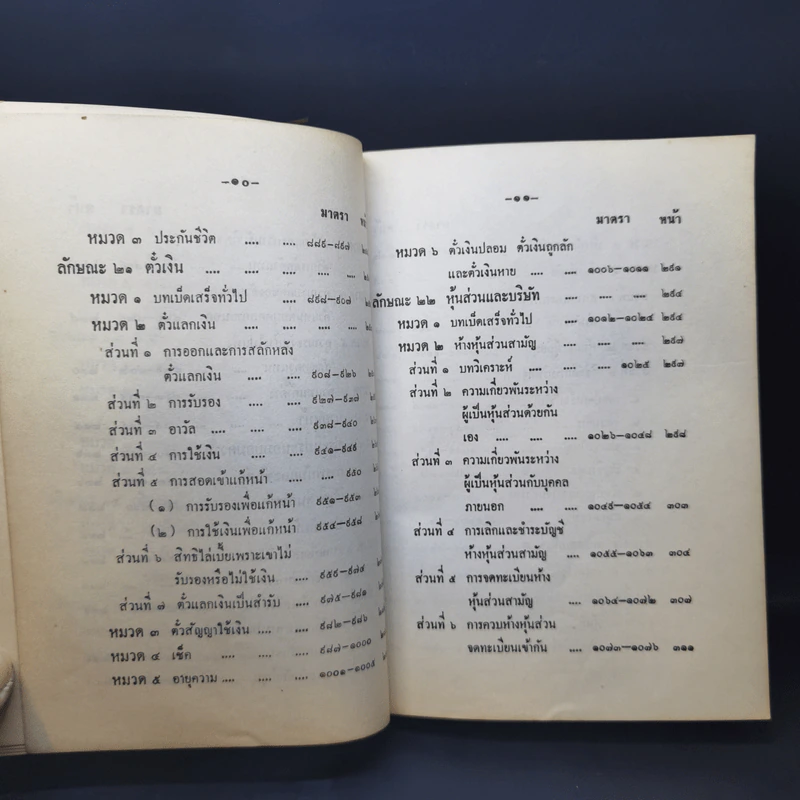 –๑๐–
มาตรา
หมวด ๓ ประกันชีวิต .... .... ๘๘๙–๘๙๗
ลักษณะ ๒๑ ตั๋วเงิน .... .... .... .... ....
หมวด ๑ บทเบ็ดเสร็จทั่วไป .... ๘๙๘–๙๐๗
หมวด ๒ ตั๋วแลกเงิน .... .... .... ....
ส่วนที่ ๑ การออกและการสลักหลัง
ตั๋วแลกเงิน .... .... ๙๐๘–๙๒๖
ส่วนที่ ๒ การรับรอง .... .... ๙๒๗–๙๓๗
ส่วนที่ ๓ อาวัล .... .... ๙๓๘–๙๔๐
ส่วนที่ ๔ การใช้เงิน .... .... ๙๔๑–๙๔๙
ส่วนที่ ๕ การสอดเข้าแก้หน้า .... .... ๙๕๐
(๑) การรับรองเพื่อแก้หน้า ๙๕๑–๙๕๓
(๒) การใช้เงินเพื่อแก้หน้า ๙๕๔–๙๕๘
ส่วนที่ ๖ สิทธิไล่เบี้ยเพราะเขาไม่
รับรองหรือไม่ใช้เงิน .... ๙๕๙–๙๗๔
ส่วนที่ ๗ ตั๋วแลกเงินเป็นสำรับ .... ๙๗๕–๙๘๑
หมวด ๓ ตั๋วสัญญาใช้เงิน .... .... ๙๘๒–๙๘๖
หมวด ๔ เช็ค .... .... .... ๙๘๗–๑๐๐๐
หมวด ๕ อายุความ .... .... .... ๑๐๐๑–๑๐๐๕
–๑๑–
มาตรา หน้า
หมวด ๖ ตั๋วเงินปลอม ตั๋วเงินถูกลัก
และตั๋วเงินหาย .... .... ๑๐๐๖–๑๐๑๑ ๒๙๑
ลักษณะ ๒๒ หุ้นส่วนและบริษัท .... .... ๒๙๔
หมวด ๑ บทเบ็ดเสร็จทั่วไป .... ๑๐๑๒–๑๐๒๔ ๒๙๔
หมวด ๒ ห้างหุ้นส่วนสามัญ .... .... .... ๒๙๗
ส่วนที่ ๑ บทวิเคราะห์ .... .... .... ๑๐๒๕ ๒๙๗
ส่วนที่ ๒ ความเกี่ยวพันระหว่าง
ผู้เป็นหุ้นส่วนด้วยกัน
เอง .... .... .... ๑๐๒๖–๑๐๔๘ ๒๙๘
ส่วนที่ ๓ ความเกี่ยวพันระหว่าง
ผู้เป็นหุ้นส่วนกับบุคคล
ภายนอก .... .... ๑๐๔๙–๑๐๕๔ ๓๐๓
ส่วนที่ ๔ การเลิกและชำระบัญชี
ห้างหุ้นส่วนสามัญ .... ๑๐๕๕–๑๐๖๓ ๓๐๔
ส่วนที่ ๕ การจดทะเบียนห้าง
หุ้นส่วนสามัญ .... ๑๐๖๔–๑๐๗๒ ๓๐๗
ส่วนที่ ๖ การควบห้างหุ้นส่วน
จดทะเบียนเข้ากัน .... ๑๐๗๓–๑๐๗๖ ๓๑๑